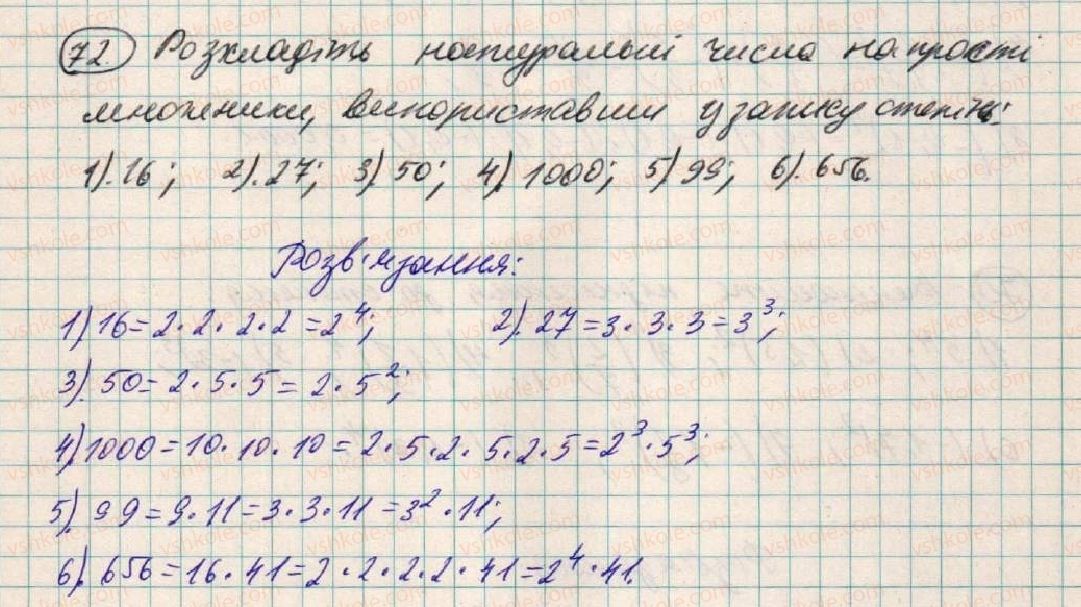 72 Розкладіть натуральні числа на прості
множники, використавши у записі степінь:
1). 16; 2). 27; 3) 50; 4). 1000; 5) 99; 6). 656.
Розв'язання:
1) 16 = 2·2·2·2 = 2⁴; 2). 27 = 3·3·3 = 3³;
3). 50 = 2·5·5 = 2·5²;
4). 1000 = 10·10·10 = 2·5·2·5·2·5 = 2³·5³;
5). 99 = 9·11 = 3·3·11 = 3²·11;
6). 656 = 16·41 = 2·2·2·2·41 = 2⁴·41.
vshkole.com